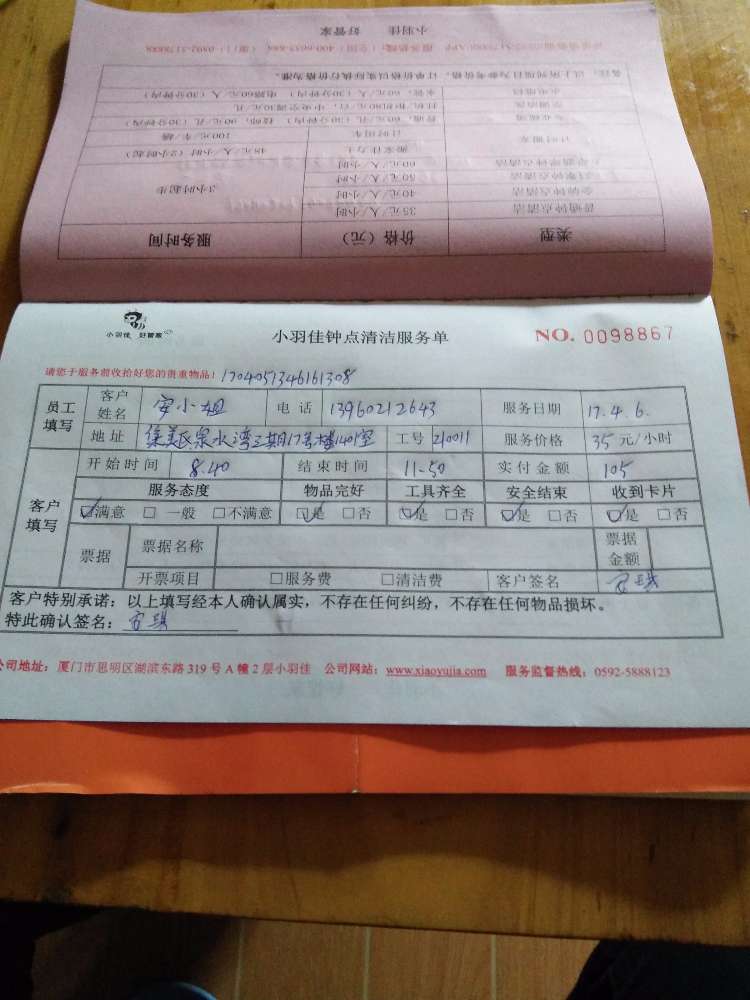 小羽佳 好管家
备注:以上所列项目为参考价格,订单价格以实际执行价格为准。
空调清洗 挂机/柜机80元/台,中央空调30元/孔
计时用车 100元/车/辆
搬家壮力士 48元/人/小时(2小时起)
60元/人/小时
50元/人/小时
金牌钟点清洁 40元/人/小时 3小时起步
普通钟点清洁 35元/人/小时
类型 价格(元) 服务时间
小羽佳 好管家
小羽佳钟点清洁服务单
NO. 0098867
请您于服务前收拾好您的贵重物品!
1704051346161308
员工填写 客户姓名 安小姐 电话 13960212643 服务日期 17.4.6.
地址 集美区泉水湾二期17号楼1401室 工号 210011 服务价格 35元/小时
客户填写 开始时间 8.40 结束时间 11.50 实付金额 105
服务态度 物品完好 工具齐全 安全结束 收到卡片
☑满意 □一般 □不满意 ☑是 □否 ☑是 □否 ☑是 □否 ☑是 □否
票据 票据名称 票据金额
开票项目 □服务费 □清洁费 客户签名
客户特别承诺:以上填写经本人确认属实,不存在任何纠纷,不存在任何物品损坏。
特此确认签名:
公司地址:厦门市思明区湖滨东路319号A幢2层小羽佳 公司网站:www.xiaoyujia.com 服务监督热线:0592-5888123